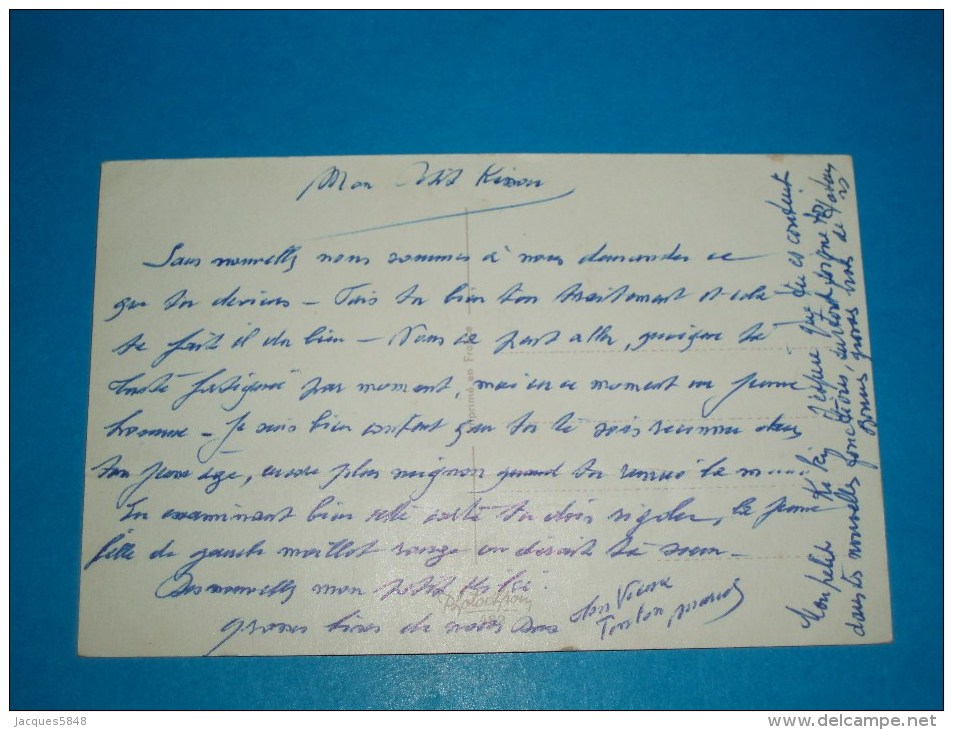 Mon Petit
Sans nouvelles nous sommes à nous demander ce
que tu deviens - Fais tu bien ton traitement et cela
te fait il du bien - Nous ce peut aller, quoique
fatigué par moment, mais en ce moment un jeune
homme - Je suis bien content que tu te sois reconnu dans
ton jeune age, encore plus mignon quand tu
En examinant bien cette carte tu dois rigoler, la jeune
fille de gauche maillot rouge on dirait ta soeur -
Des nouvelles mon petit
grosses bises de nous Deux
ton Vieux
Tonton
Mon petit Ki Ki j'espère que tu es content
dans tes nouvelles fonctions, surtout soigne toi
Bonnes grosses bises de
Imprimé en France
Photochrom
Jacques5848
delcampe.net